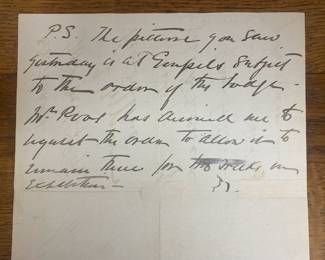 P.S. The picture you saw
yesterday is at Goupils subject
to the order of the lodge -
Mr. Roos has advised me to
request the order to allow it to
remain there for two weeks on
Exhibition -